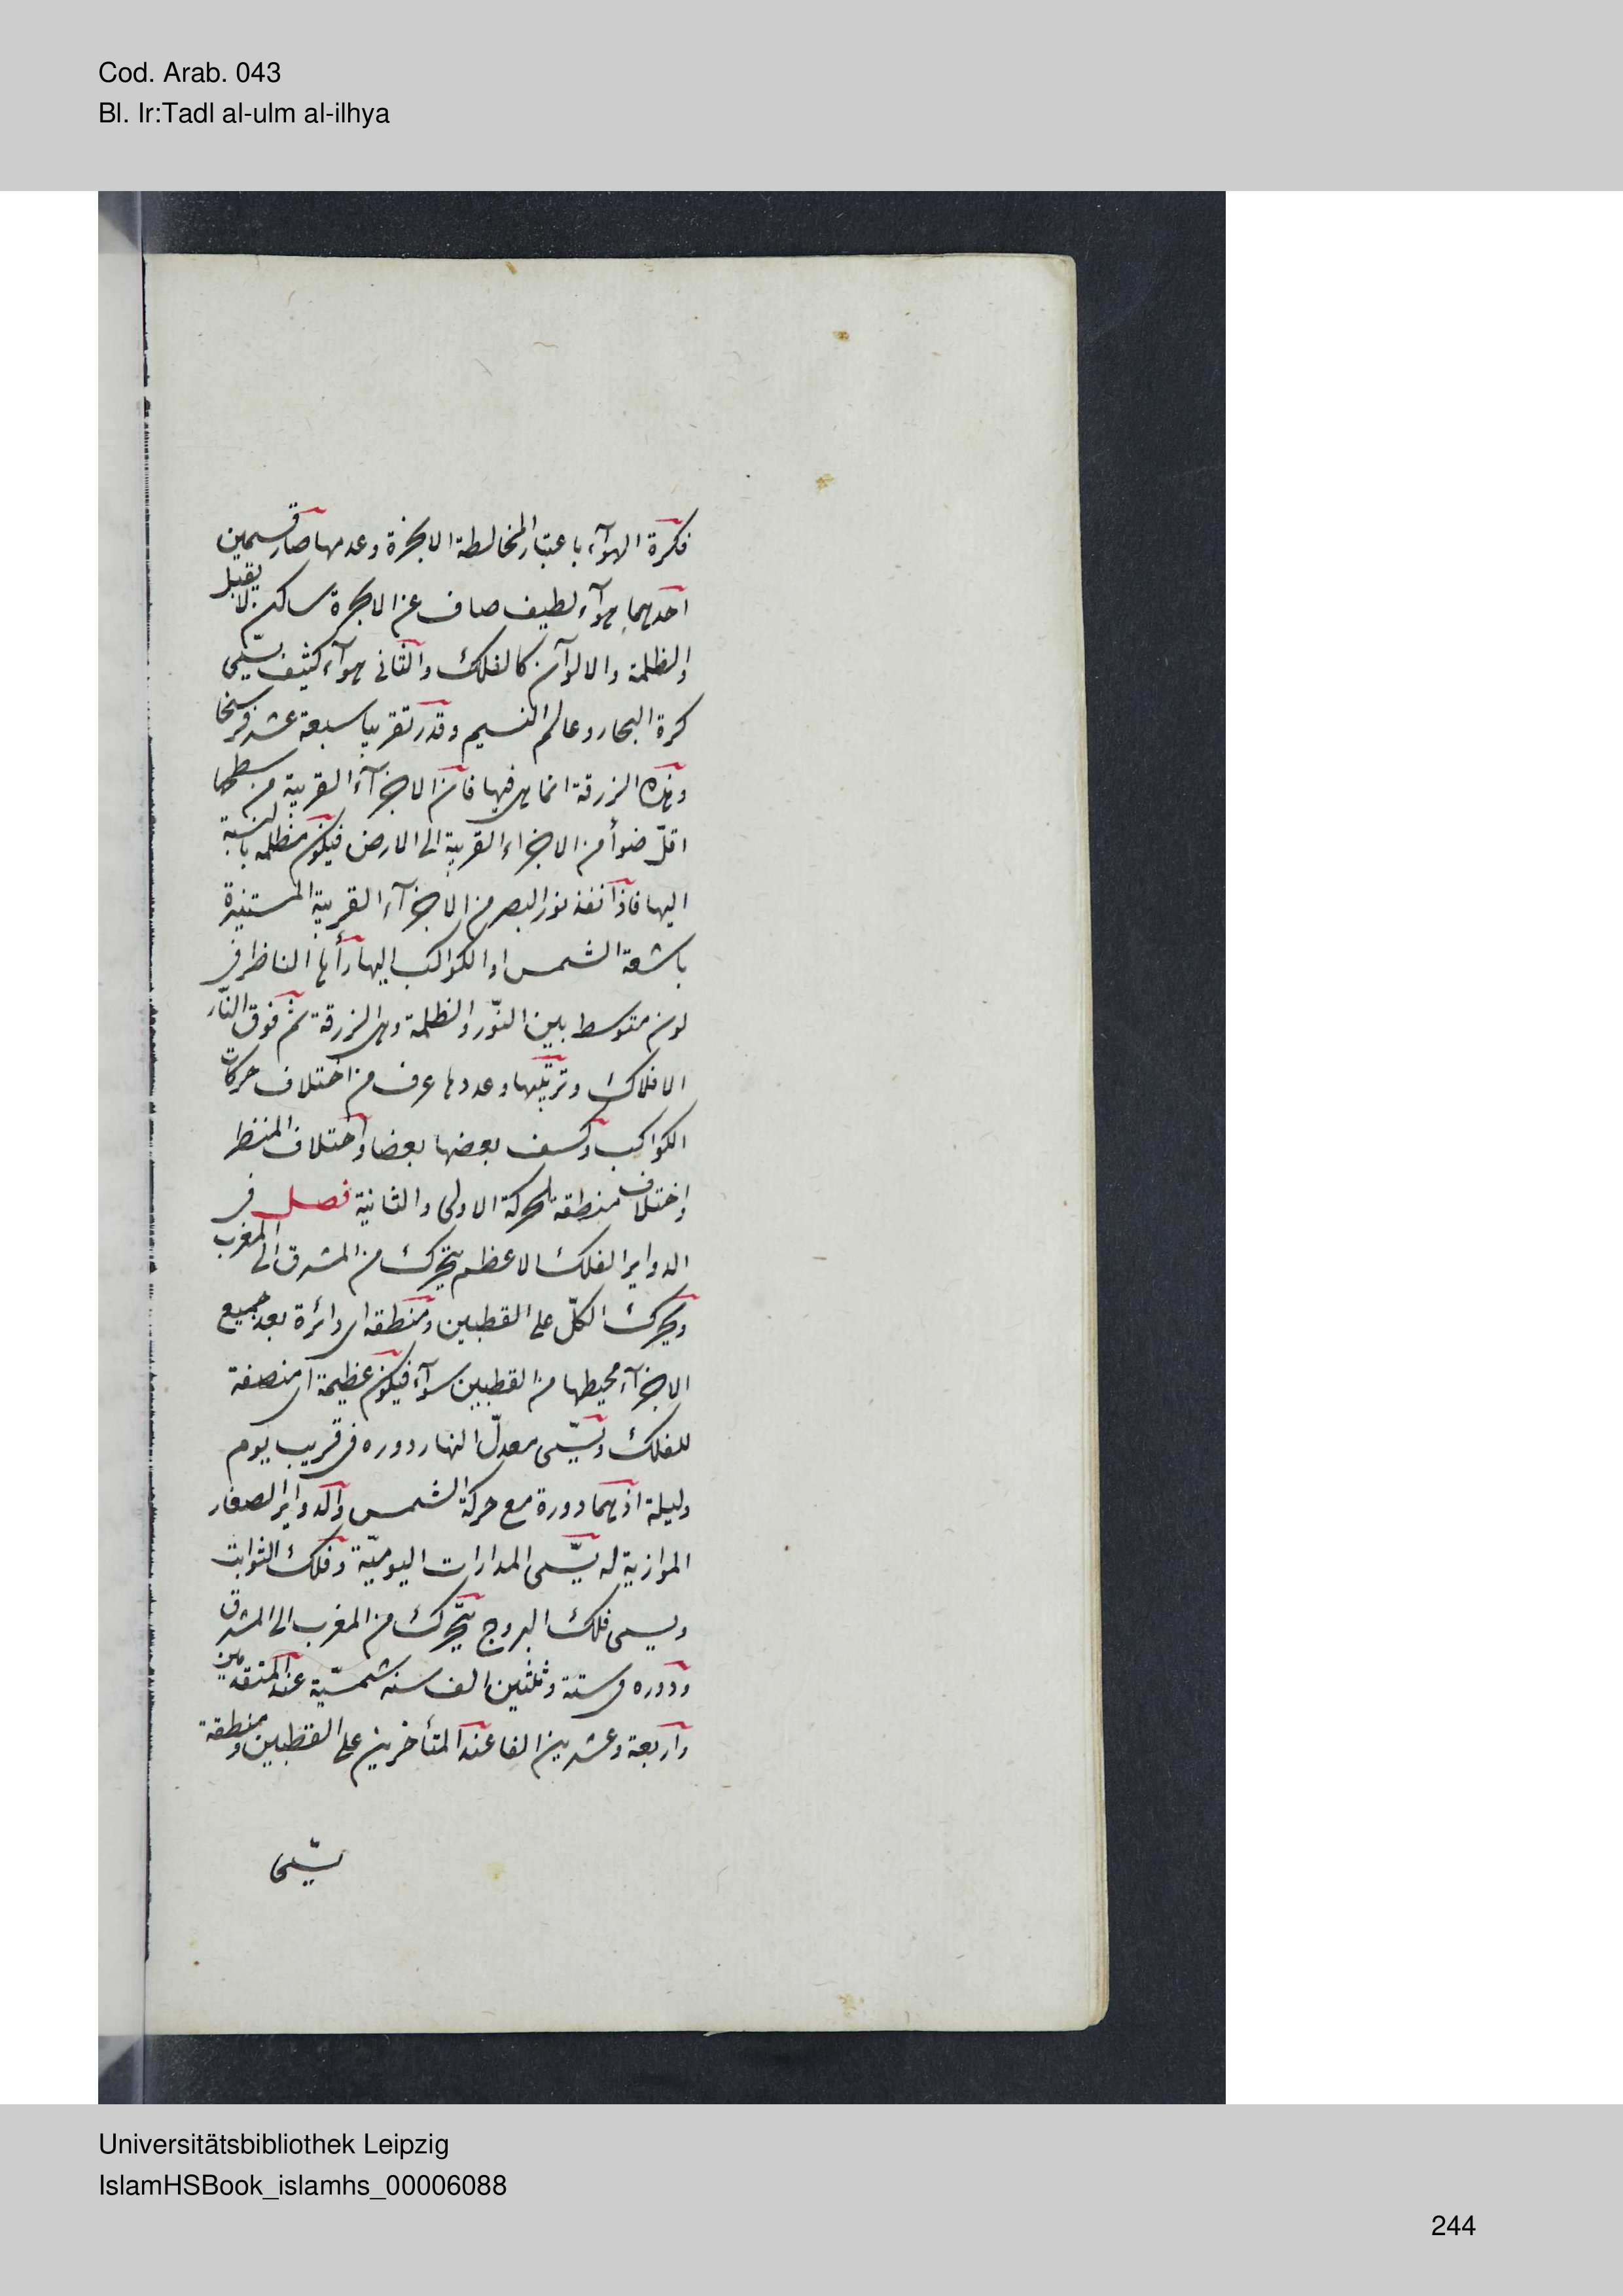 Cod. Arab. 043
Bl. Ir:Tadl al-ulm al-ilhya
فكرة الهوآء باعتبار المخالطة الابخرة وعدمها صار قسمين
احدهما هوآء لطيف صاف عن الابخرة ساكن لا يقبل
الظلمة والالوآن كالفلك والثانى هوآء كثيف يسمّى
كرة البخار وعالم النسيم وقدر تقريبا سبعة عشر فرسخا
وهذه الزرقة انما هى فيها فان الاجزآء القريبة من سطحها
اقلّ ضوأ من الاجزاء القريبة الى الارض فيكون مظلمه بالنسبة
اليها فاذا نفذ نور البصر من الاجزآء القريبة المستنيرة
باشعة الشمس او الكواكب اليها رأها الناظر فى
لون متوسط بين النّور والظلمة وهى الزرقة ثم فوق النّار
الافلاك وترتيبها وعددها عرف من اختلاف حركات
الكواكب وكسف بعضها بعضا واختلاف المنظر
واختلاف منطقة الحركة الاولى والثانية فصل فى
الدواير الفلك الاعظم يتحرك من المشرق الى المغرب
ويحرك الكلّ على القطبين ومنطقه اى دائرة بعد جميع
الاجزآء محيطها من القطبين سوآء فيكون عظيمة اى منصفة
للفلك وتسمّى معدلّ النهار دوره فى قريب يوم
وليلة اذ هما دورة مع حركة الشمس والدواير الصغار
الموازية له يسّمى المدارات اليوميّة وفلك الثوابت
ويسمى فلك البروج يتحرك من المغرب الى المشرق
ودوره فى ستة وثلثين الف سنه شمسيّة عند المتقدمين
واربعة وعشرين الفا عند المتأخرين على القطبين ومنطقة
يسّمى
Universitätsbibliothek Leipzig
IslamHSBook_islamhs_00006088
244